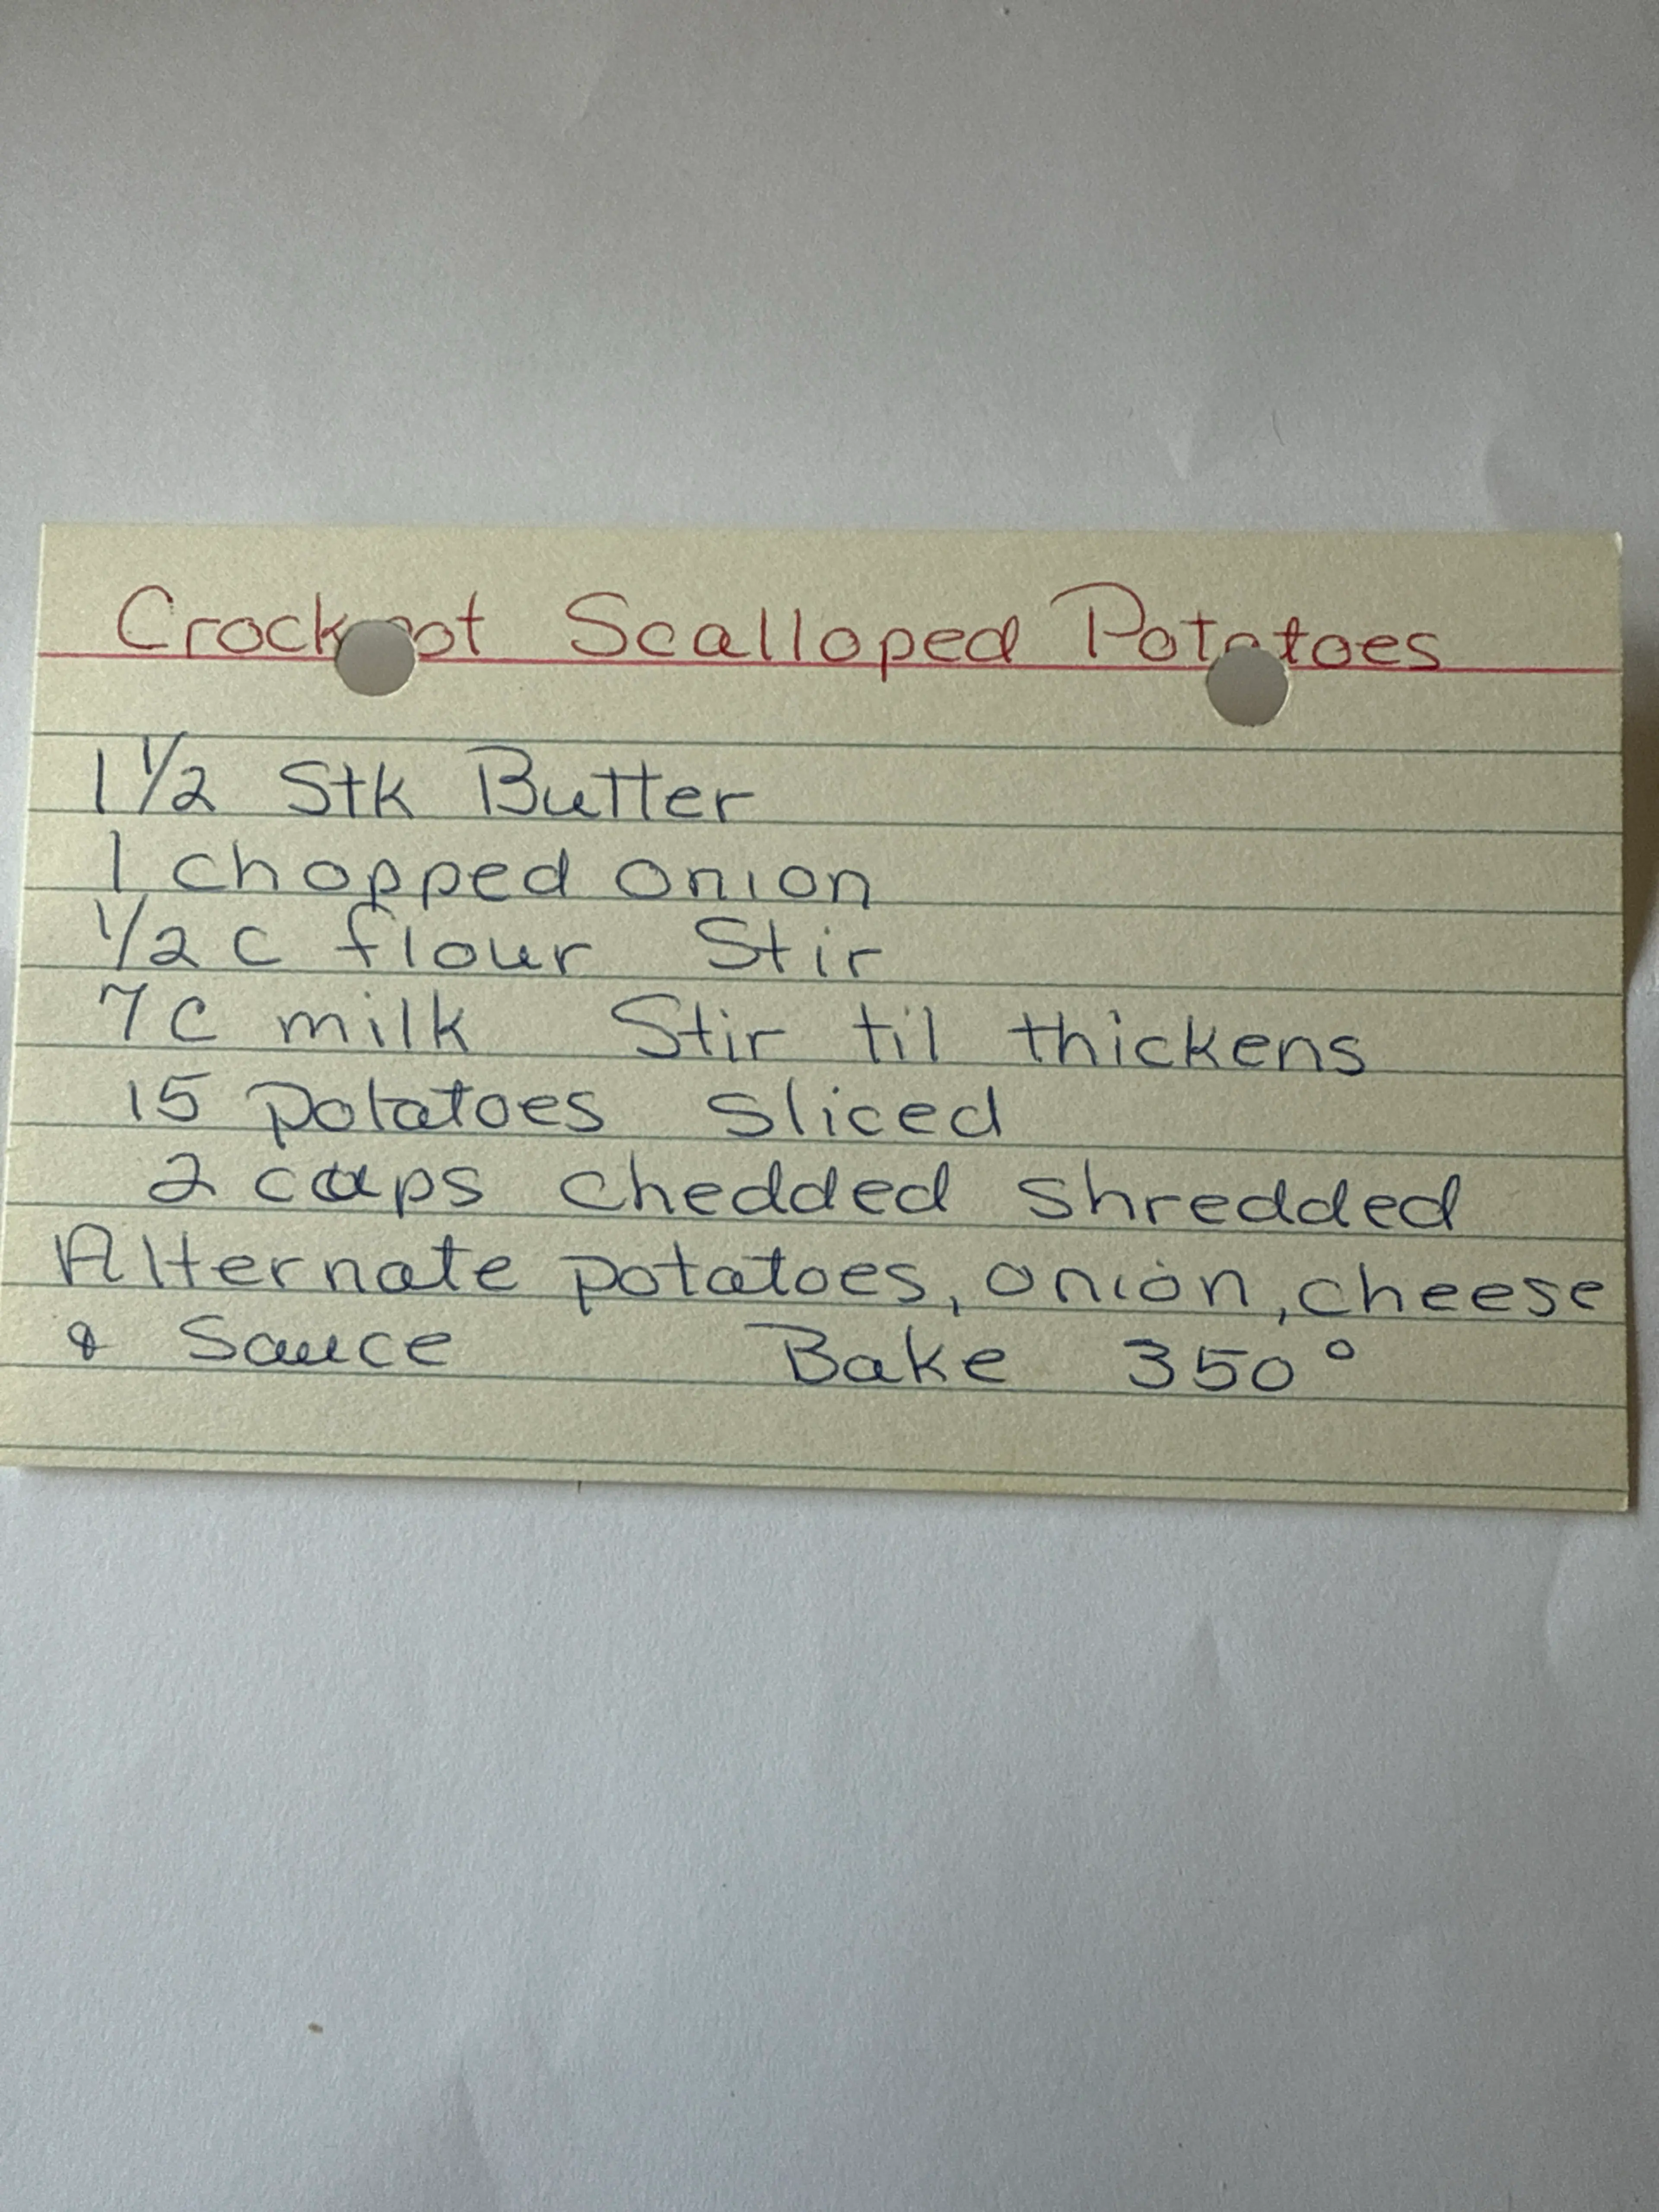 Crockpot Scalloped Potatoes
1 1/2 Stk Butter
1 chopped onion
1/2 C flour Stir
7 C milk Stir til thickens
15 potatoes sliced
2 cups chedded shredded
Alternate potatoes, onion, cheese
& Sauce Bake 350°